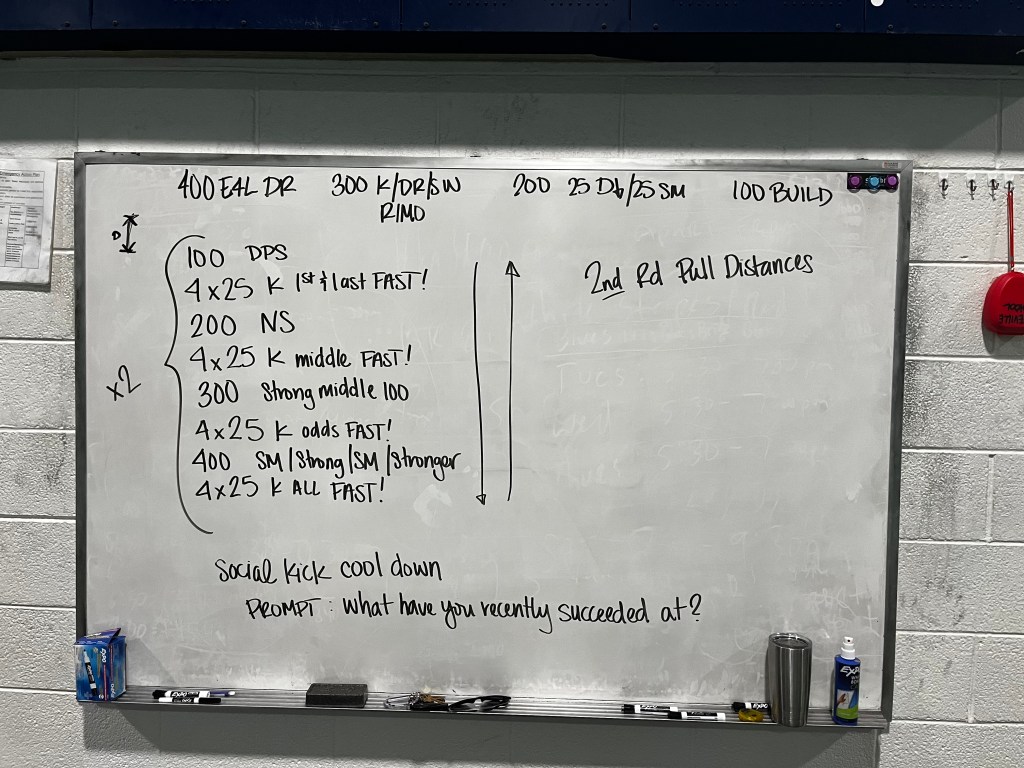 400 E4L DR 300 K/DR/SW 200 25 Db/25 SM 100 BUILD
RIMO
D
100 DPS
4x25 K 1st & last FAST!
200 NS
4x25 K middle FAST!
300 Strong middle 100
4x25 K odds FAST!
400 SM/Strong/SM/Stronger
4x25 K ALL FAST!
x2
2nd Rd Pull Distances
Social Kick cool down
PROMPT: What have you recently succeeded at?
EXPO
EXPO
EXPO